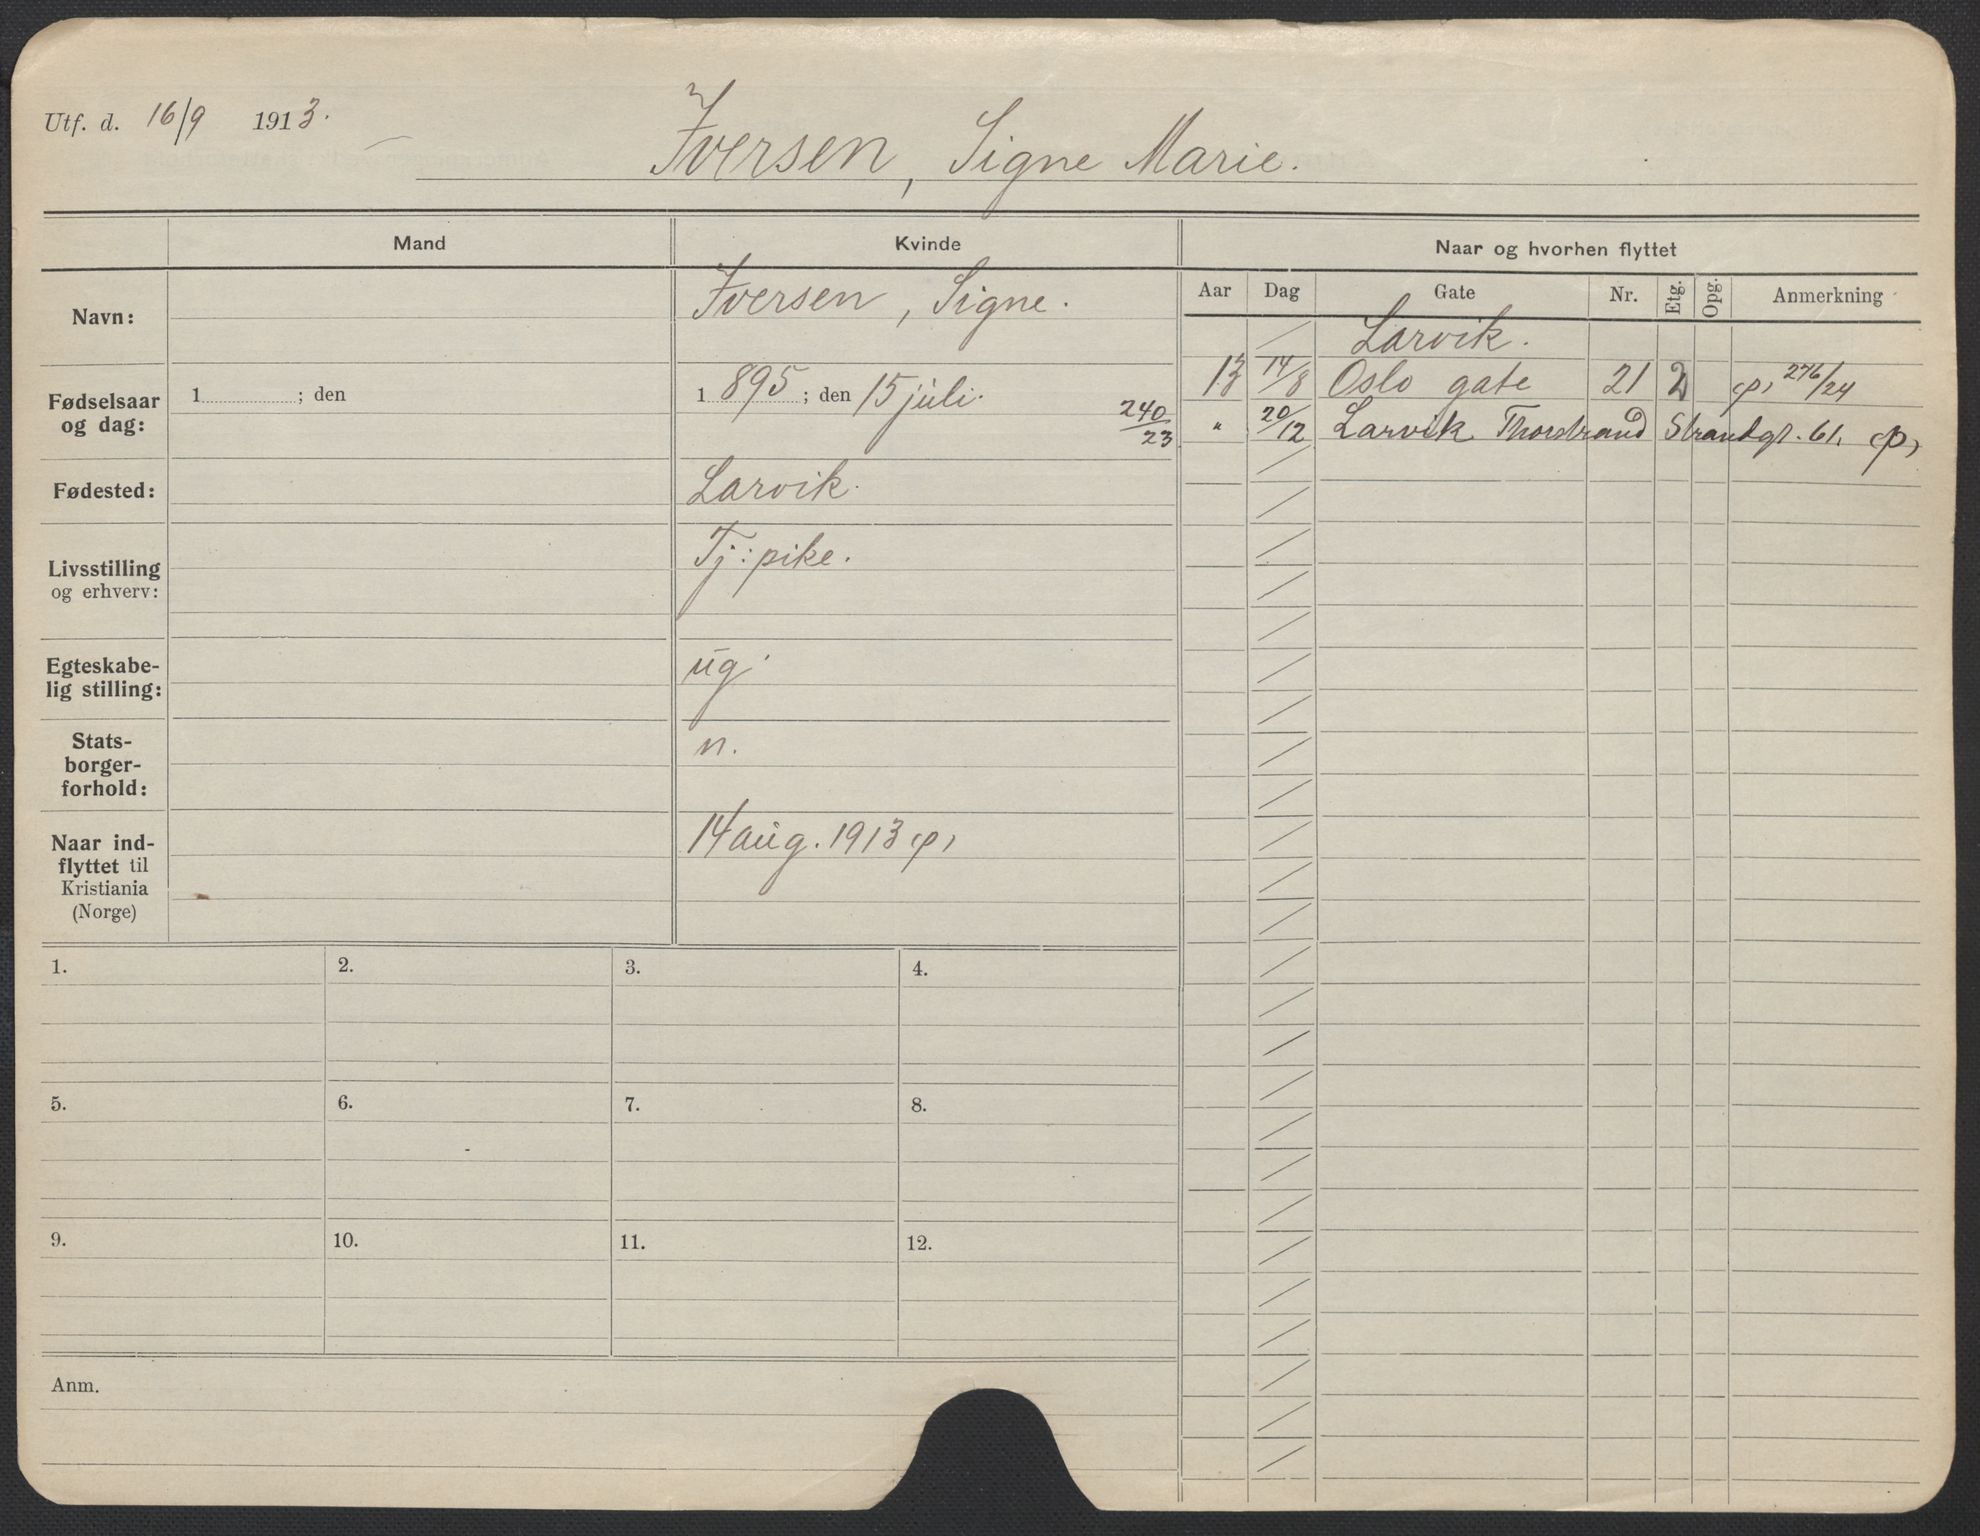 Utf. d. 16/9 1913.
Iversen, Signe Marie.
Mand
Kvinde
Naar og hvorhen flyttet
Aar Dag Gate Nr. Etg. Opg. Anmerkning
Navn:
Iversen, Signe.
Fødselsaar og dag:
1 ; den
1 895 ; den 15 juli.
240/23
Fødested:
Larvik.
Livsstilling og erhverv:
Tj: pike.
Egteskabe-
lig stilling:
ug.
Stats-
borger-
forhold:
n.
Naar ind-
flyttet til
Kristiania
(Norge)
14 aug. 1913 p,
Larvik.
13 14/8 Oslo gate 21 2 p, 276/24
" 20/12 Larvik Thorstrand Strandgt. 61. p,
1.
2.
3.
4.
5.
6.
7.
8.
9.
10.
11.
12.
Anm.